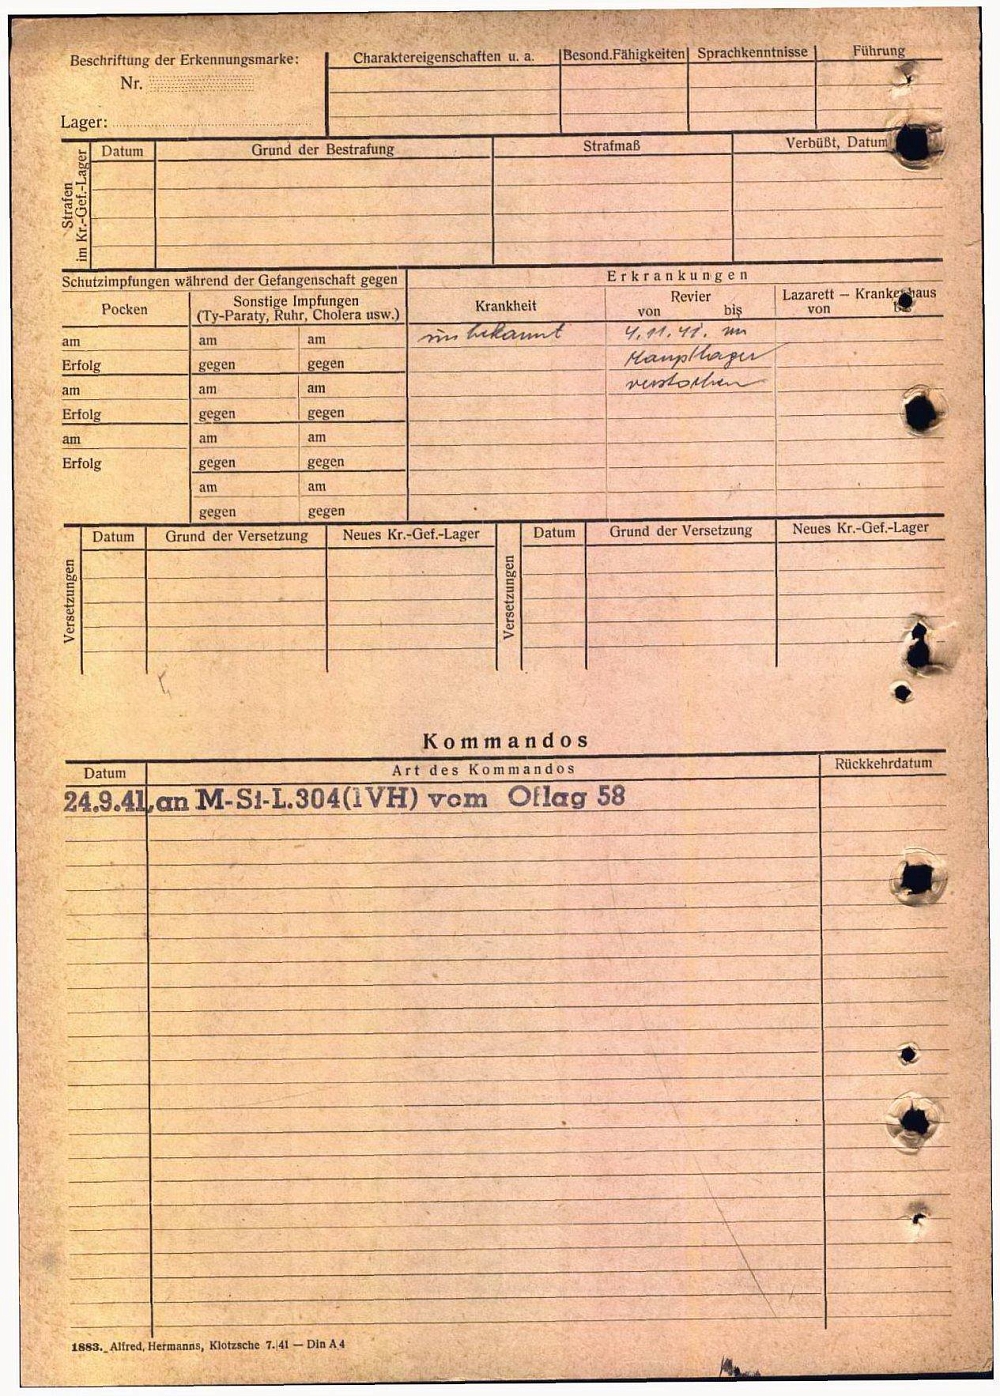 Beschriftung der Erkennungsmarke:
Nr.
Lager:
Charaktereigenschaften u. a.
Besond. Fähigkeiten
Sprachkenntnisse
Führung
Strafen
im Kr.-Gef.-Lager
Datum
Grund der Bestrafung
Strafmaß
Verbüßt, Datum
Schutzimpfungen während der Gefangenschaft gegen
Pocken
Sonstige Impfungen
(Ty-Paraty, Ruhr, Cholera usw.)
Erkrankungen
Krankheit
Revier
von bis
Lazarett – Krankenhaus
von bis
am am am
unbekannt 4.11.41. im
Erfolg gegen gegen
Hauptlager
am am am
verstorben
Erfolg gegen gegen
am am am
Erfolg gegen gegen
am am
gegen gegen
Versetzungen
Datum
Grund der Versetzung
Neues Kr.-Gef.-Lager
Versetzungen
Datum
Grund der Versetzung
Neues Kr.-Gef.-Lager
Kommandos
Datum
Art des Kommandos
Rückkehrdatum
24.9.41, an M-St-L.304(IVH) vom Oflag 58
1883. Alfred, Hermanns, Klotzsche 7. 41 — Din A 4